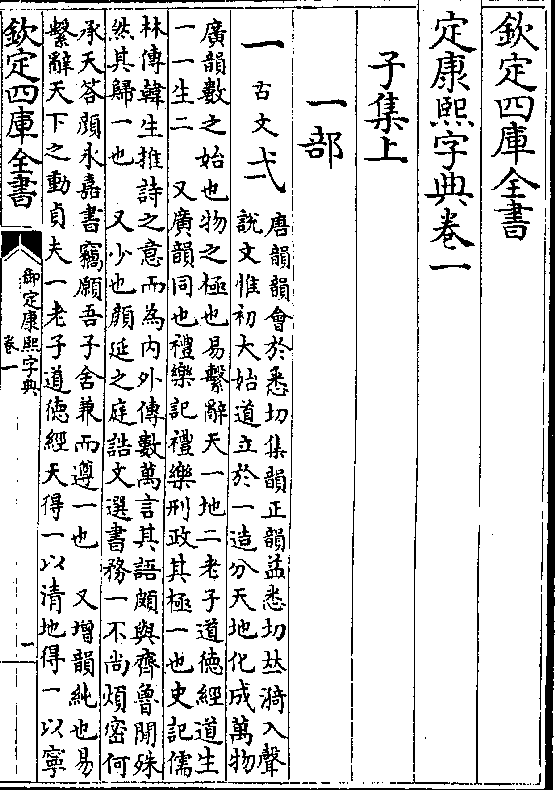 欽定四庫全書
定康熙字典卷一
子集上
一部
一
古文弌
唐韻韻會於悉切集韻正韻益悉切𠀤漪入聲
說文惟初大始道立於一造分天地化成萬物
廣韻數之始也物之極也易繫辭天一地二老子道德經道生
一一生二　又廣韻同也禮樂記禮樂刑政其極一也史記儒
林傳韓生推詩之意而為內外傳數萬言其語頗與齊魯閒殊
然其歸一也　又少也顏延之庭誥文選書務一不尚煩密何
承天答顏永嘉書竊願吾子舍兼而遵一也　又增韻純也易
繫辭天下之動貞夫一老子道德經天得一以清地得一以寧
欽定四庫全書
御定康熙字典
卷一
一